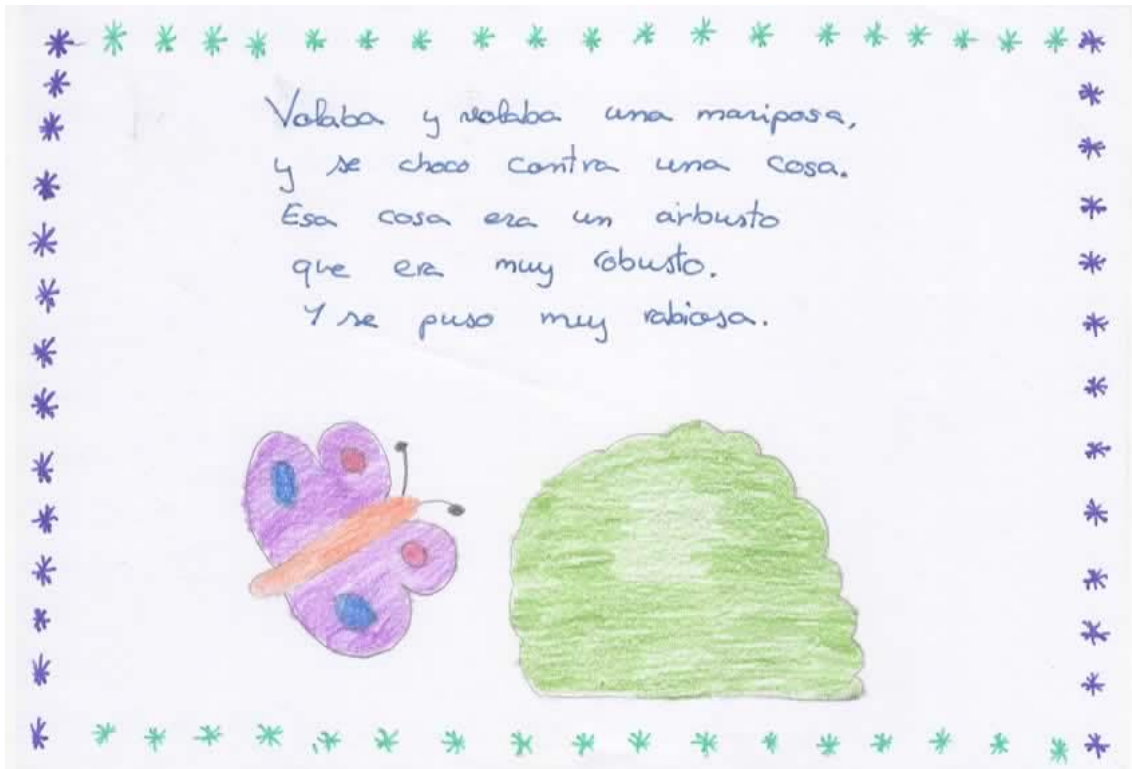 Volaba y volaba una mariposa,
y se choco contra una cosa.
Esa cosa era un airbusto
que era muy robusto.
Y se puso muy rabiosa.